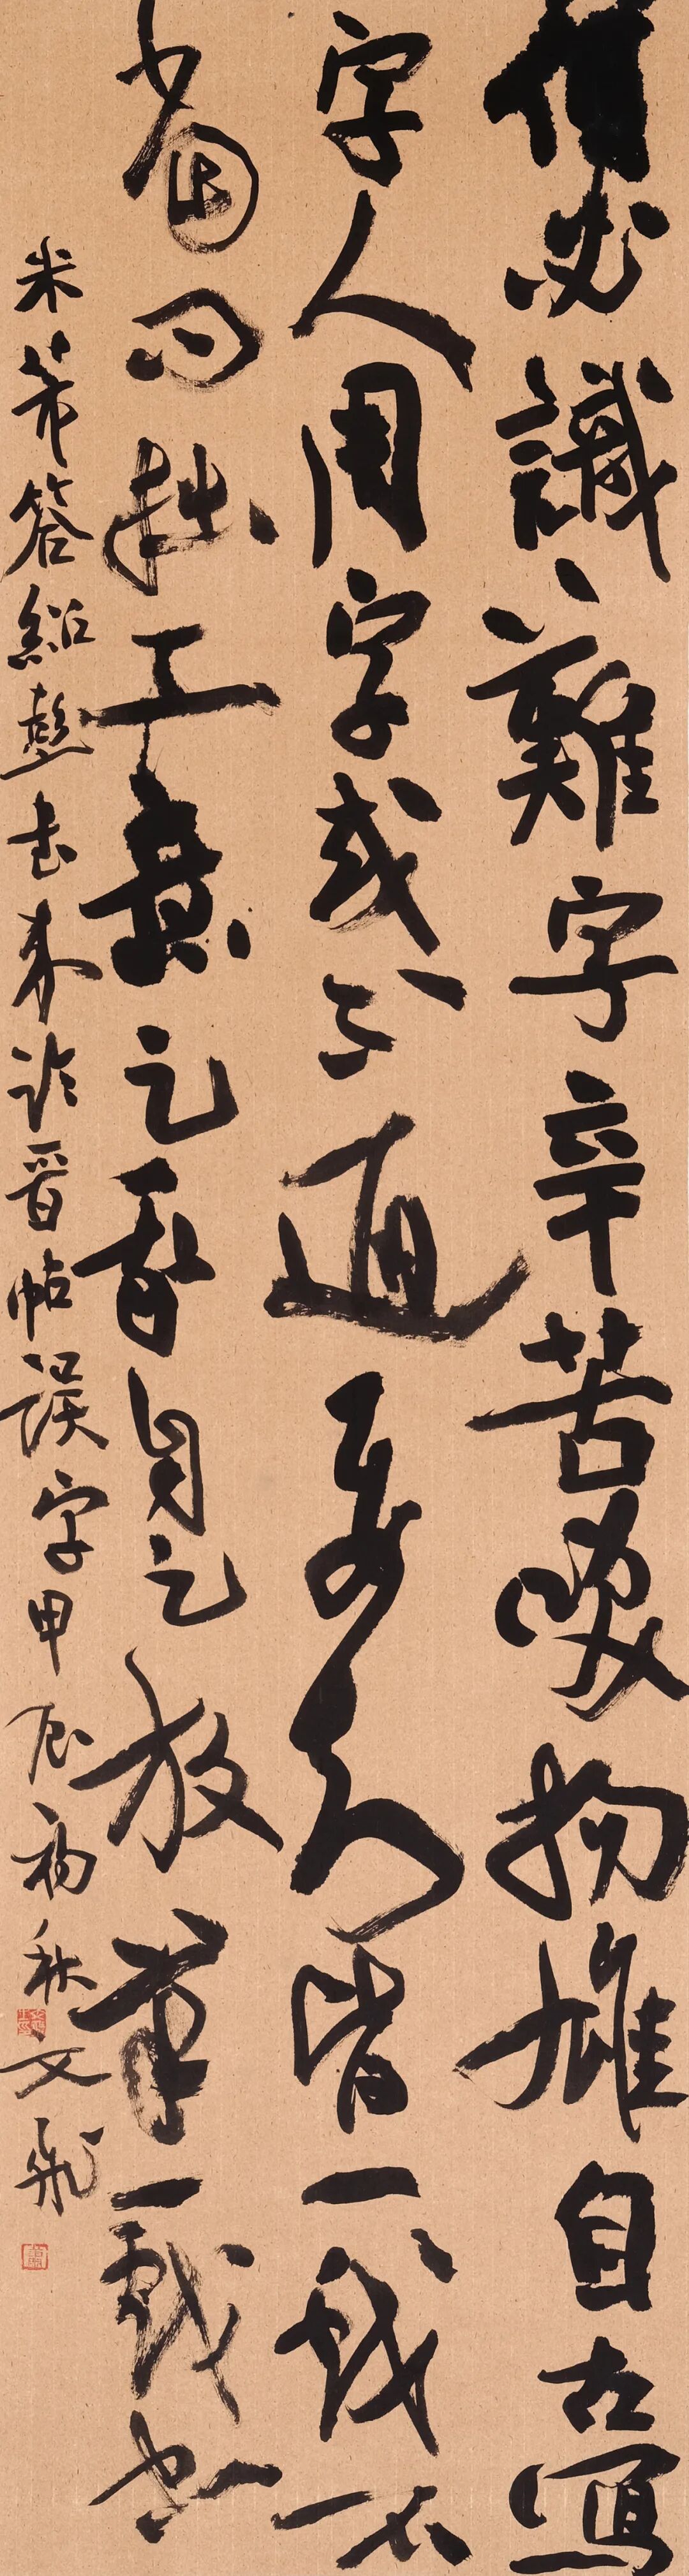 何必識難字辛苦咲揚雄自古寫
字人用字或不通要之皆一戲不
當問拙工意足我自足放筆一戲空
米芾答紹彭書來論晉帖誤字甲辰初秋文飛